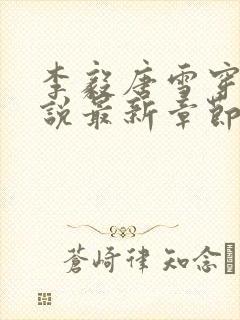 李毅唐雪穿
説最新章節
蒼崎律 知念